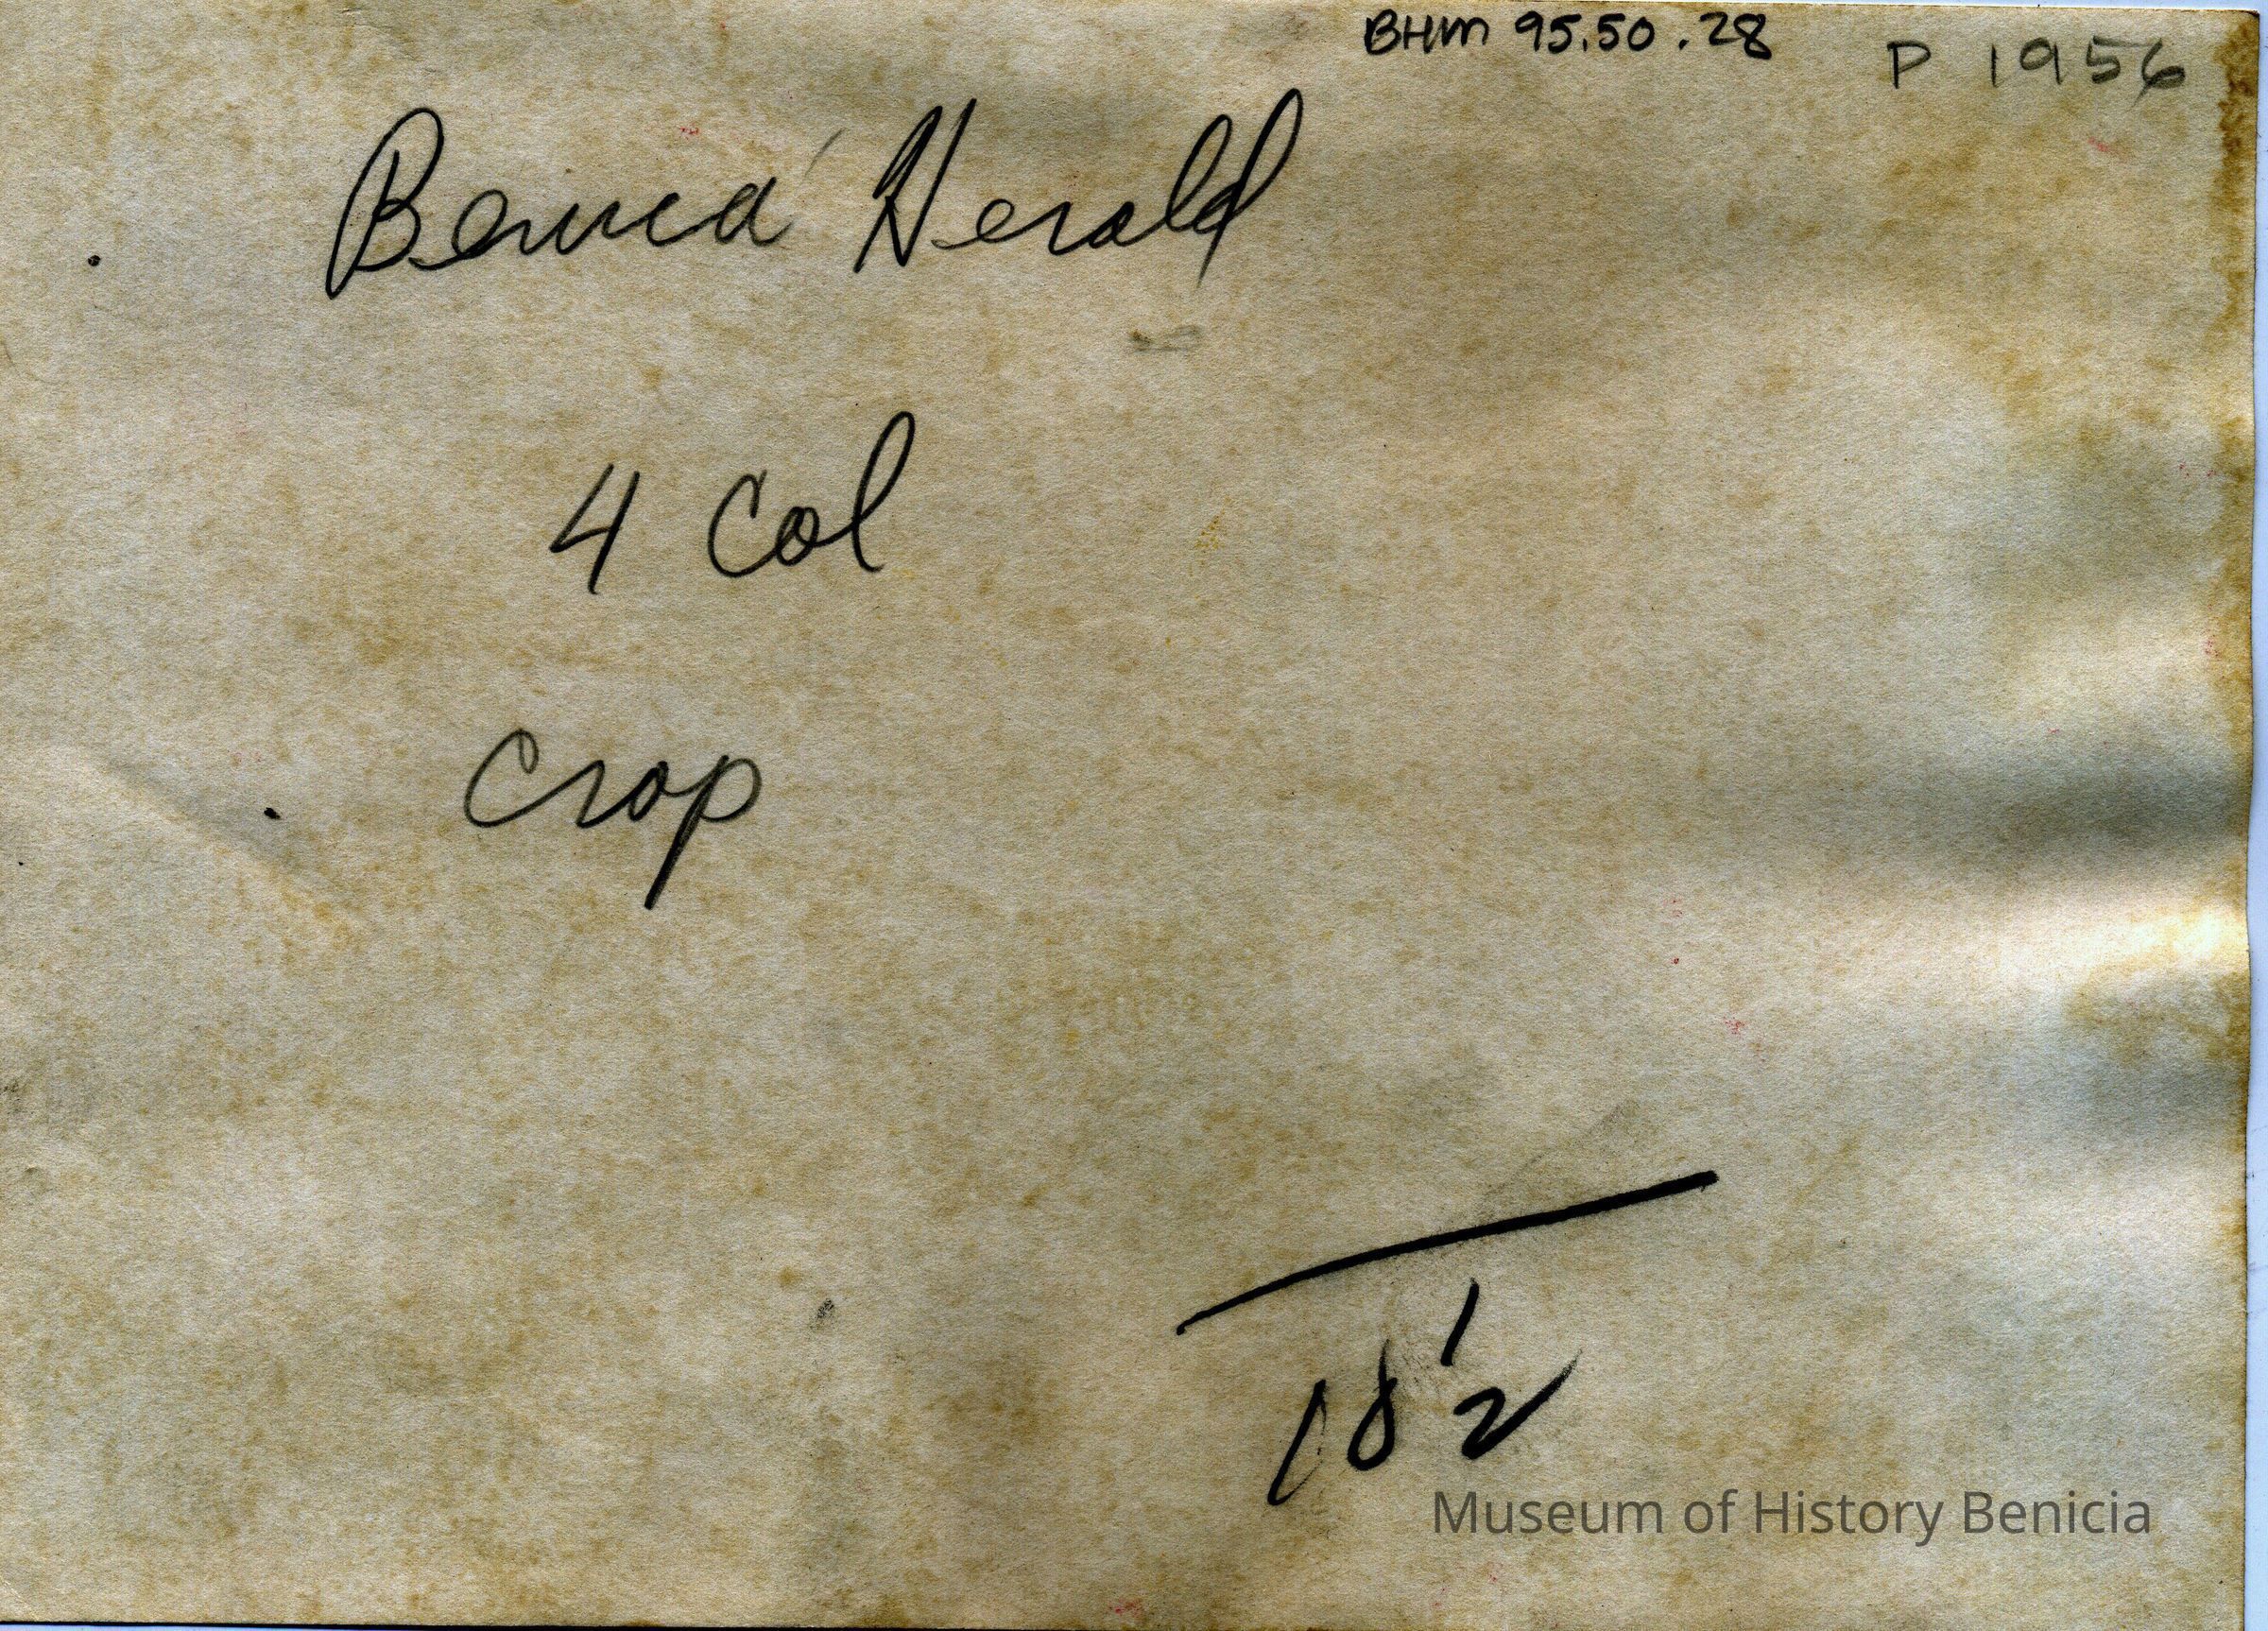 BHM 95.50.28 P 1956
Benicia Herald
4 Col
Crop
18 1/2
Museum of History Benicia